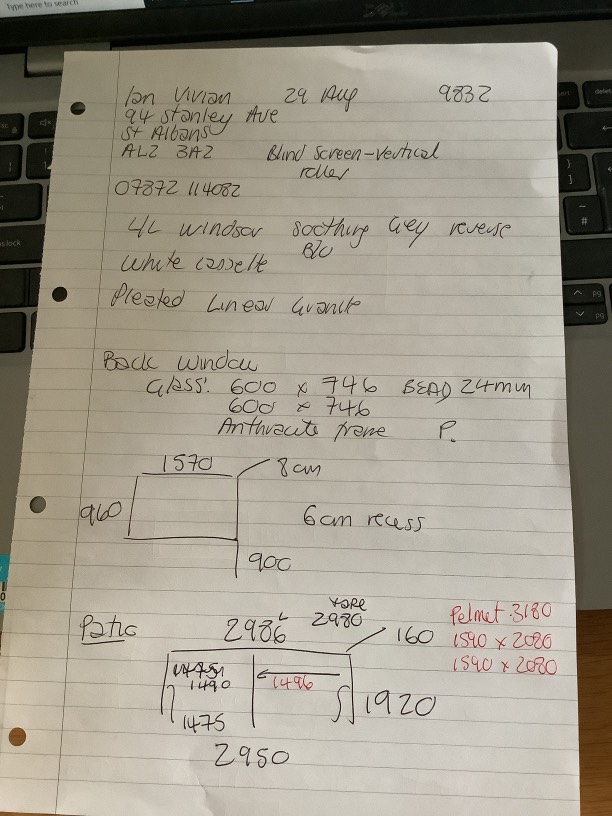 Type here to search
DELL
Ian Vivian 29 Aug 9832
94 Stanley Ave
St Albans
AL2 3AZ Blind Screen-Vertical
roller
07872 114082
L/L Windsor Soothing Grey reverse
B/O
White Cassette
Pleated Linear Granite
Back Window
Glass: 600 x 746 BEAD 24mm
600 x 746
Anthracite frame P.
1570 8cm
960 6cm recess
900
Patio 2986 2980 160 Pelmet 3180
1590 x 2080
1590 x 2080
1490 1496
1475 1920
2950